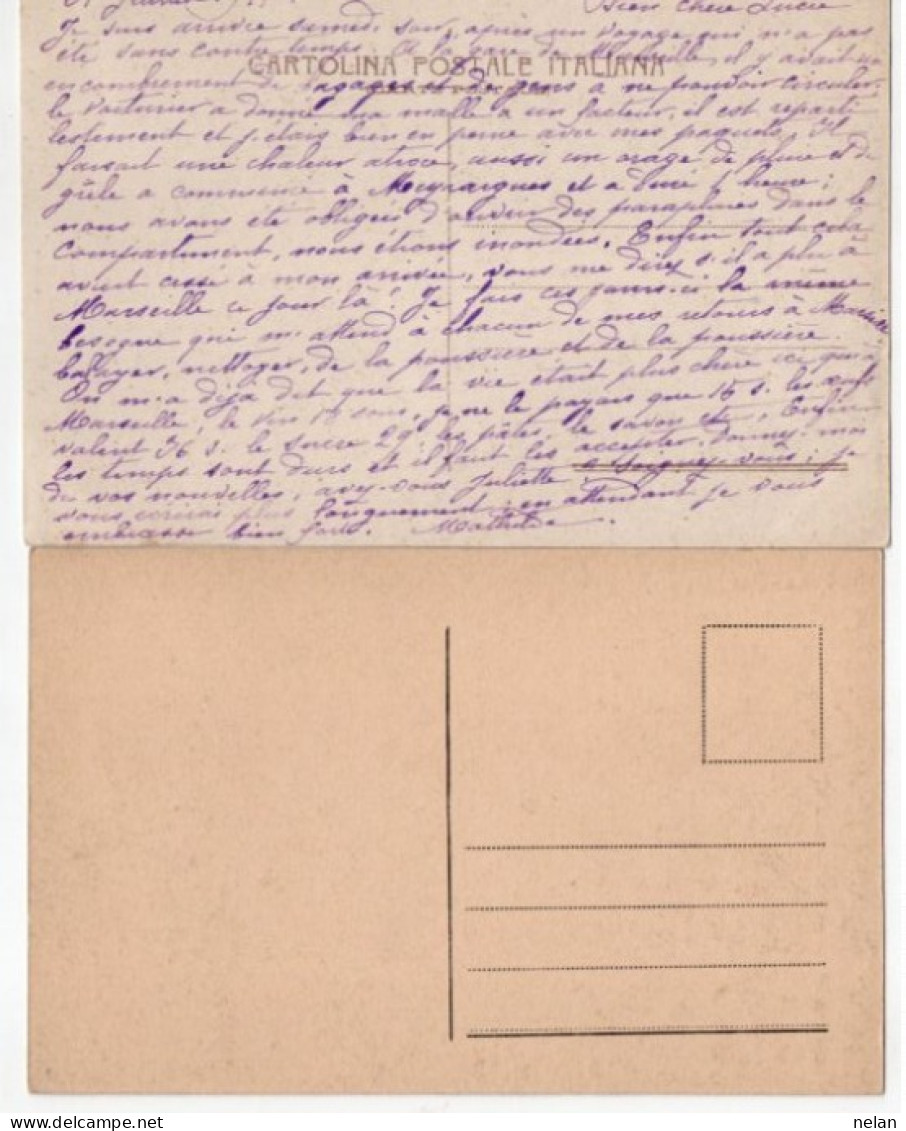 Bien chère Lucie
Je suis arrivée samedi soir, après un voyage qui n'a pas
été sans contre temps. A la gare de Marseille, il y avait un
CARTOLINA POSTALE ITALIANA
encombrement de bagages et de gens a ne pouvoir circuler;
le voiturier a donné ma malle a un facteur, il est reparti
lestement et j'étais bien en peine avec mes paquets. Il
faisait une chaleur atroce, aussi un orage de pluie et de
grêle a commencé à Meyrargues et a duré 1 heure;
nous avons été obligées d'ouvrir des parapluies dans le
compartiment, nous étions inondées. Enfin tout cela
avait cessé à mon arrivée, vous me direz s'il a plu à
Marseille ce jour là! Je fais ces jours-ci la même
besogne qui m'attend à chacun de mes retours à Marseille
balayer, nettoyer, de la poussière et de la poussière.
On m'a déjà dit que la vie était plus chère ici qu'à
Marseille, le vin 18 sous, je ne le payais que 15 s. les œufs
valent 36 s. le sucre 29 les pâtes, le savon etc, Enfin
les temps sont durs et il faut les accepter. Donnez-moi
de vos nouvelles, avez-vous Juliette? Soignez-vous; je
vous écrirai plus longuement; en attendant je vous
embrasse bien fort. Mathilde
nelan